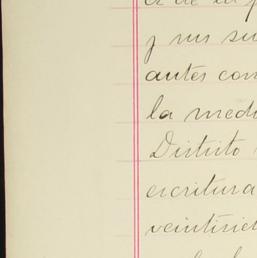 a de la p
y sus su
antes con
la medi
Distrito
escritura
veintisie